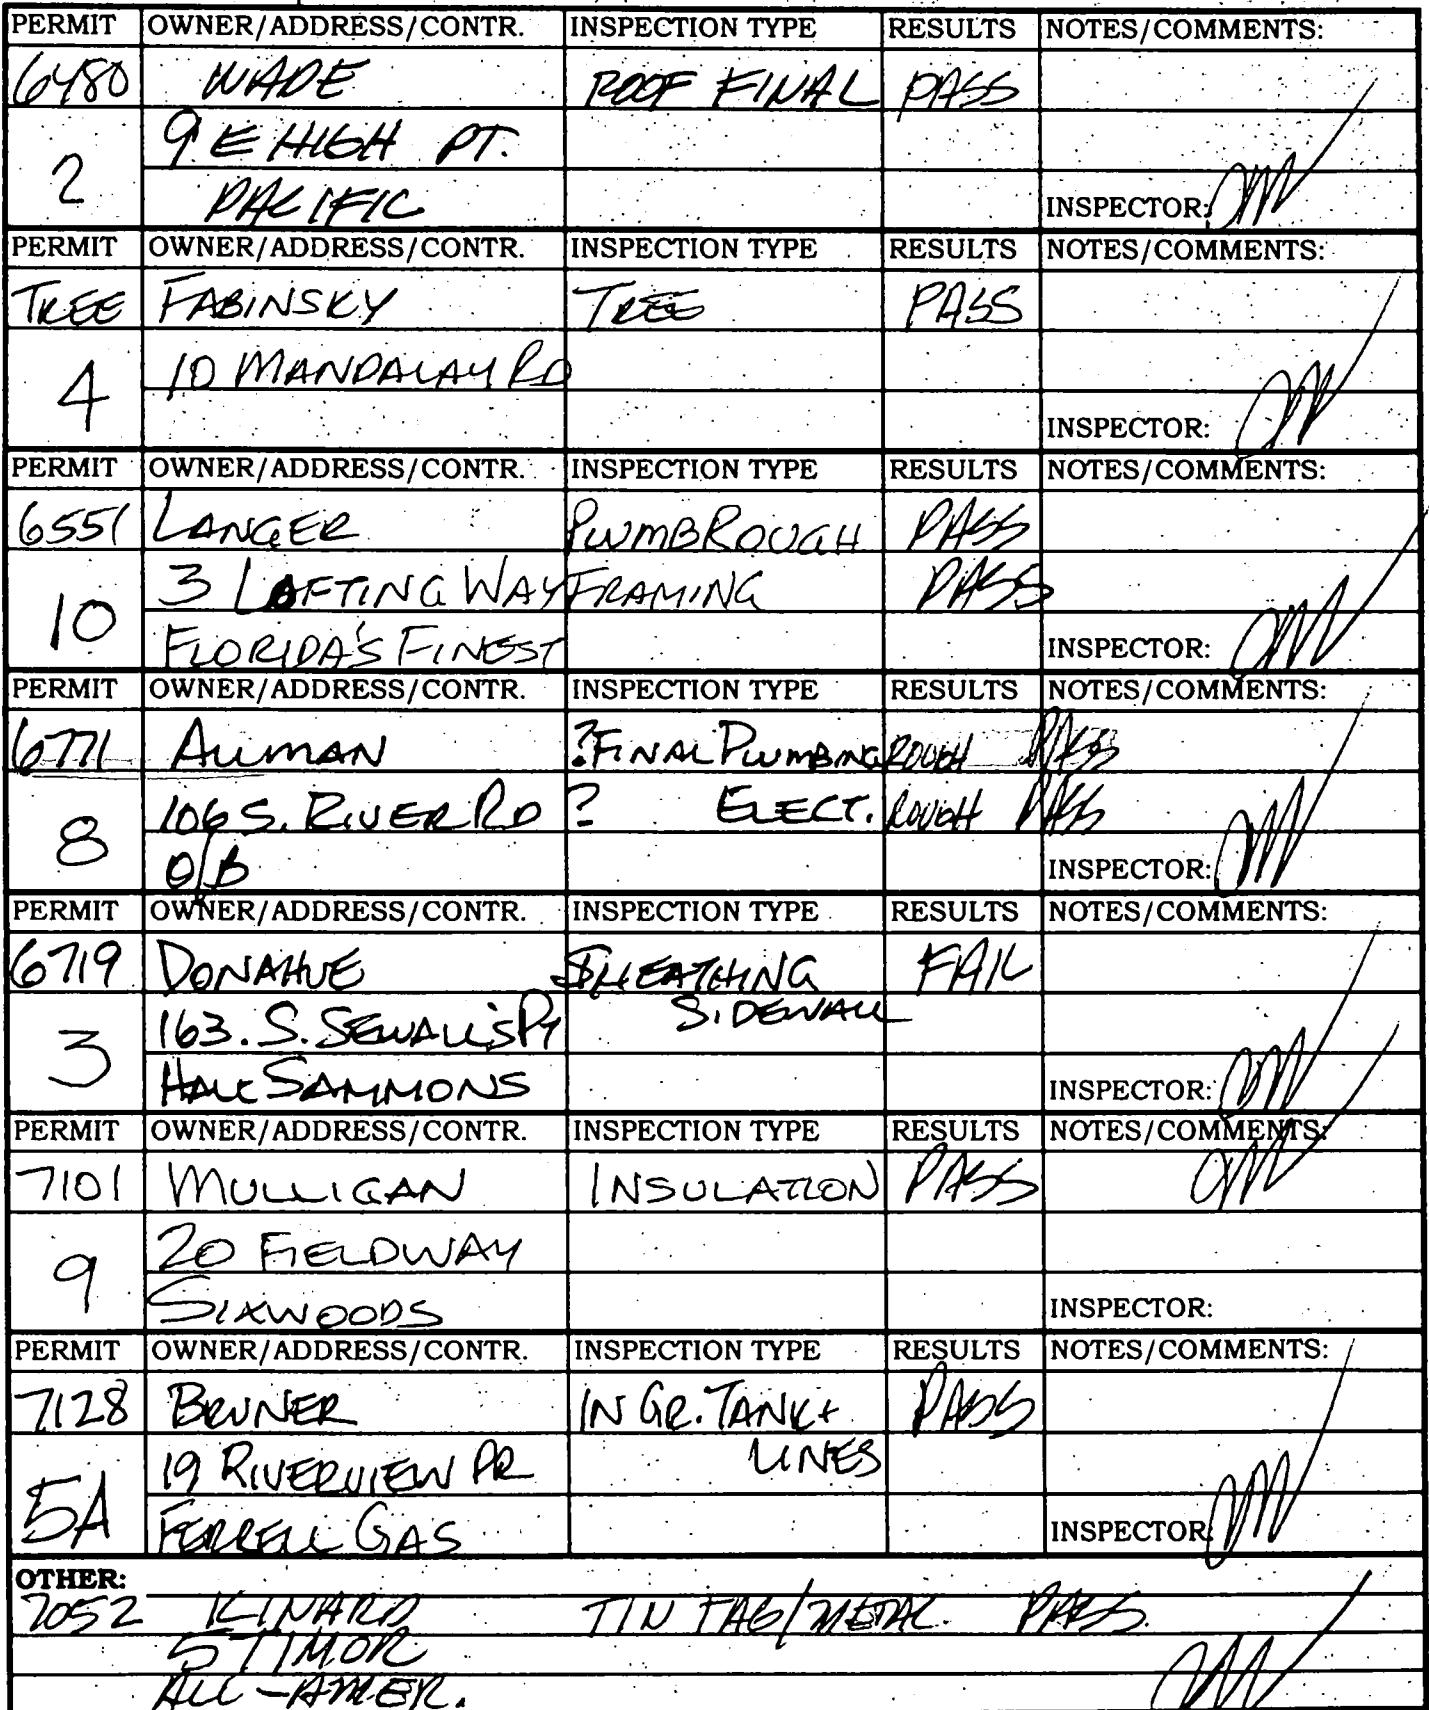 PERMIT OWNER/ADDRESS/CONTR. INSPECTION TYPE RESULTS NOTES/COMMENTS:
6480 WADE ROOF FINAL PASS
9 E HIGH PT.
2 PACIFIC INSPECTOR:
PERMIT OWNER/ADDRESS/CONTR. INSPECTION TYPE RESULTS NOTES/COMMENTS:
TREE FABINSKY TREE PASS
4 10 MANDALAY RD
INSPECTOR:
PERMIT OWNER/ADDRESS/CONTR. INSPECTION TYPE RESULTS NOTES/COMMENTS:
6551 LANGER PLUMBROUGH PASS
10 3 LOFTING WAY FRAMING PASS
FLORIDA'S FINEST INSPECTOR:
PERMIT OWNER/ADDRESS/CONTR. INSPECTION TYPE RESULTS NOTES/COMMENTS:
6771 ALLMAN ? FINAL PLUMBING ROUGH PASS
8 106 S. RIVER RD ? ELECT. ROUGH PASS
O/B INSPECTOR:
PERMIT OWNER/ADDRESS/CONTR. INSPECTION TYPE RESULTS NOTES/COMMENTS:
6719 DONAHUE SHEATHING FAIL
3 163. S. SEWALL'S PT SIDEWALL
HALL SAMMONS INSPECTOR:
PERMIT OWNER/ADDRESS/CONTR. INSPECTION TYPE RESULTS NOTES/COMMENTS:
7101 MULLIGAN INSULATION PASS
9 20 FIELDWAY
SIXWOODS INSPECTOR:
PERMIT OWNER/ADDRESS/CONTR. INSPECTION TYPE RESULTS NOTES/COMMENTS:
7128 BRUNER IN GR. TANK + PASS
5A 19 RIVERVIEW DR LINES
FERRELL GAS INSPECTOR:
OTHER:
7052 KINARD TIN TAG/METAL PASS
5 TIMOR
ALL-AMER.